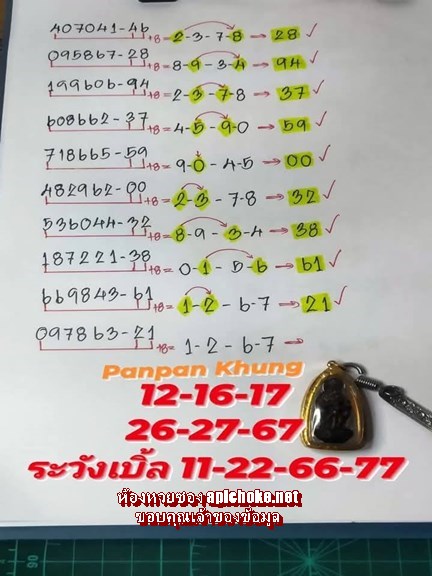 407041-46 +8= 2-3-7-8 → 28 ✓
095867-28 +8= 8-9-3-4 → 94 ✓
199606-94 +8= 2-3-7-8 → 37 ✓
608662-37 +8= 4-5-9-0 → 59 ✓
718665-59 +8= 9-0-4-5 → 00 ✓
482962-00 +8= 2-3-7-8 → 32 ✓
536044-32 +8= 8-9-3-4 → 38 ✓
187221-38 +8= 0-1-5-6 → 61 ✓
669843-61 +8= 1-2-6-7 → 21 ✓
097863-21 +8= 1-2-6-7 →
Panpan Khung
12-16-17
26-27-67
ระวังเบิ้ล 11-22-66-77
ห้องหวยซอง apichoke.net
ขอบคุณเจ้าของข้อมูล
90